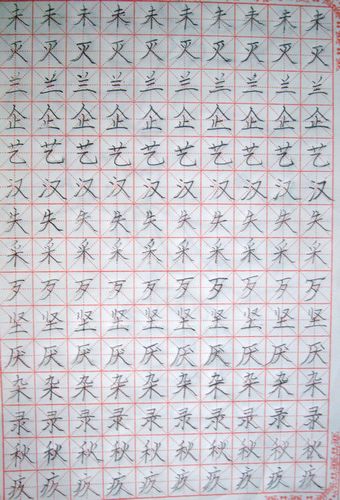 未未未未未未未未未未
灭灭灭灭灭灭灭灭灭灭
兰兰兰兰兰兰兰兰兰兰
企企企企企企企企企企
艺艺艺艺艺艺艺艺艺艺
汉汉汉汉汉汉汉汉汉汉
失失失失失失失失失失
采采采采采采采采采采
歹歹歹歹歹歹歹歹歹歹
坚坚坚坚坚坚坚坚坚坚
厌厌厌厌厌厌厌厌厌厌
杂杂杂杂杂杂杂杂杂杂
录录录录录录录录录录
秋秋秋秋秋秋秋秋秋秋